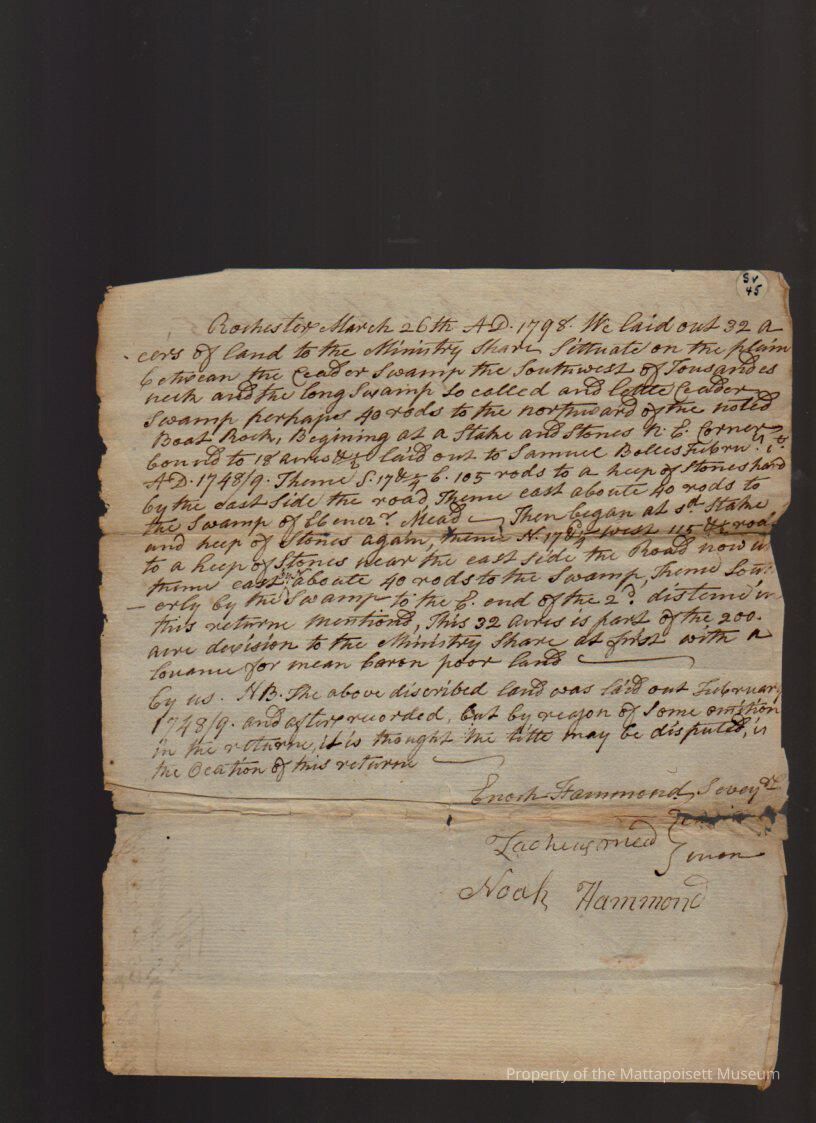 Sv
45
Rochester March 26th A.D. 1798. We laid out 32 a
cers of land to the Ministry share, Sittuate on the plain
betwean the Ceader Swamp the Southwest of Tousandes
neck and the long Swamp so called and little Ceader
Swamp perhaps 40 rods to the northward of the noted
Boat Rock, Begining at a Stake and Stones N. E. Corner
bound to 18 acres & ½ laid out to Samuel Bolles Febru
A.D. 1748/9. Thence S. 17 & ¼ E. 105 rods to a heep of stones hard
by the east side the road Thence east aboute 40 rods to
the Swamp of Ebenezr. Mead Then began at sd. Stake
and heep of Stones again, thence N. 17 & ¼ west 115 & ½ rods
to a heep of Stones near the east side the Road now in
thence east aboute 40 rods to the Swamp, Thence Sout
erly by the Swamp to the E. end of the 2d. distence in
this returne mentiond, This 32 acres is part of the 200
acre devision to the Ministry Share at first with a
lowance for mean baron poor land
by us. NB. The above discribed land was laid out February
1748/9. and after recorded, but by reason of some omition
in the returne, it is thought the title may be disputed, is
the Ocation of this returne
Enoch Hammond, Seveyr
Zacheus mead
Noah Hammond
Property of the Mattapoisett Museum